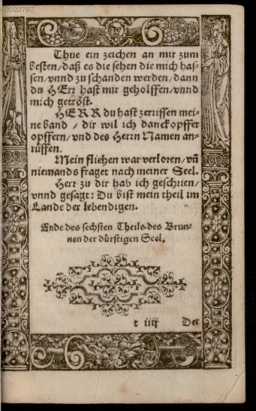 Thue ein zeichen an mir zum
besten/ daß es die sehen die mich has-
sen/vnnd zu schanden werden/dann
du HErr hast mir geholffen/vnnd
mich getröst.
HERR du hast zerrissen mei-
ne band / dir wil ich danckopffer
opffern/ vnd des Herrn Namen an-
rüffen.
Mein fliehen war verloren/ vñ
niemands fraget nach meiner Seel.
Herr zu dir hab ich geschrien/
vnnd gesagt: Du bist mein theil im
Lande der lebendigen.
Ende des sechsten Theils des Brun-
nen der dürstigen Seel.
t iiij Der